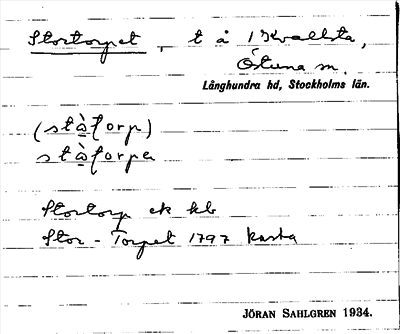 Stortorpet, t å 1 Kvallsta,
Östuna sn.
Långhundra hd, Stockholms län.
(stà̱ʈorp)
stà̱ʈorpe
Stortorp ek kb
Stor-Torpet 1797 karta
JÖRAN SAHLGREN 1934.